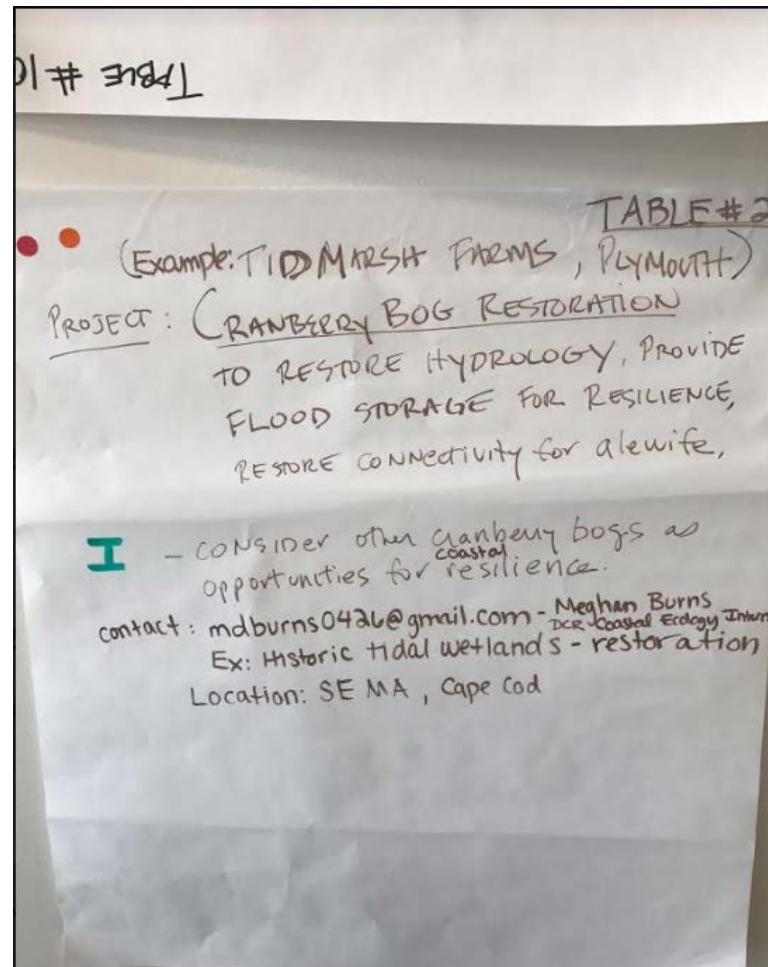 TABLE # 10
TABLE #2
(Example: TIDMARSH FARMS, PLYMOUTH)
PROJECT: CRANBERRY BOG RESTORATION
TO RESTORE HYDROLOGY, PROVIDE
FLOOD STORAGE FOR RESILIENCE,
RESTORE CONNectivity for alewife,
I - CONSIDer other cranberry bogs as
opportunities for coastal resilience.
contact: mdburns0426@gmail.com - Meghan Burns
DCR Coastal Ecology Intern
Ex: Historic tidal wetlands - restoration
Location: SE MA, Cape Cod